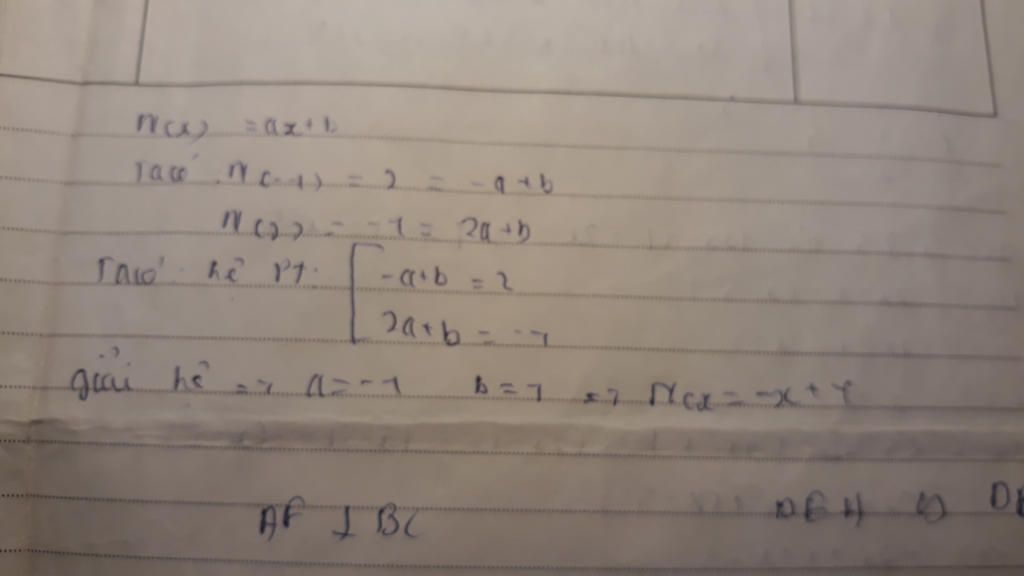 N(x) = ax+b
Ta có N(-1) = 2 = -a+b
N(2) = -1 = 2a+b
Ta có hệ PT: -a+b = 2
2a+b = -1
giải hệ => a = -1 b = 1 => N(x = -x+1
AF ⊥ BC
DEH